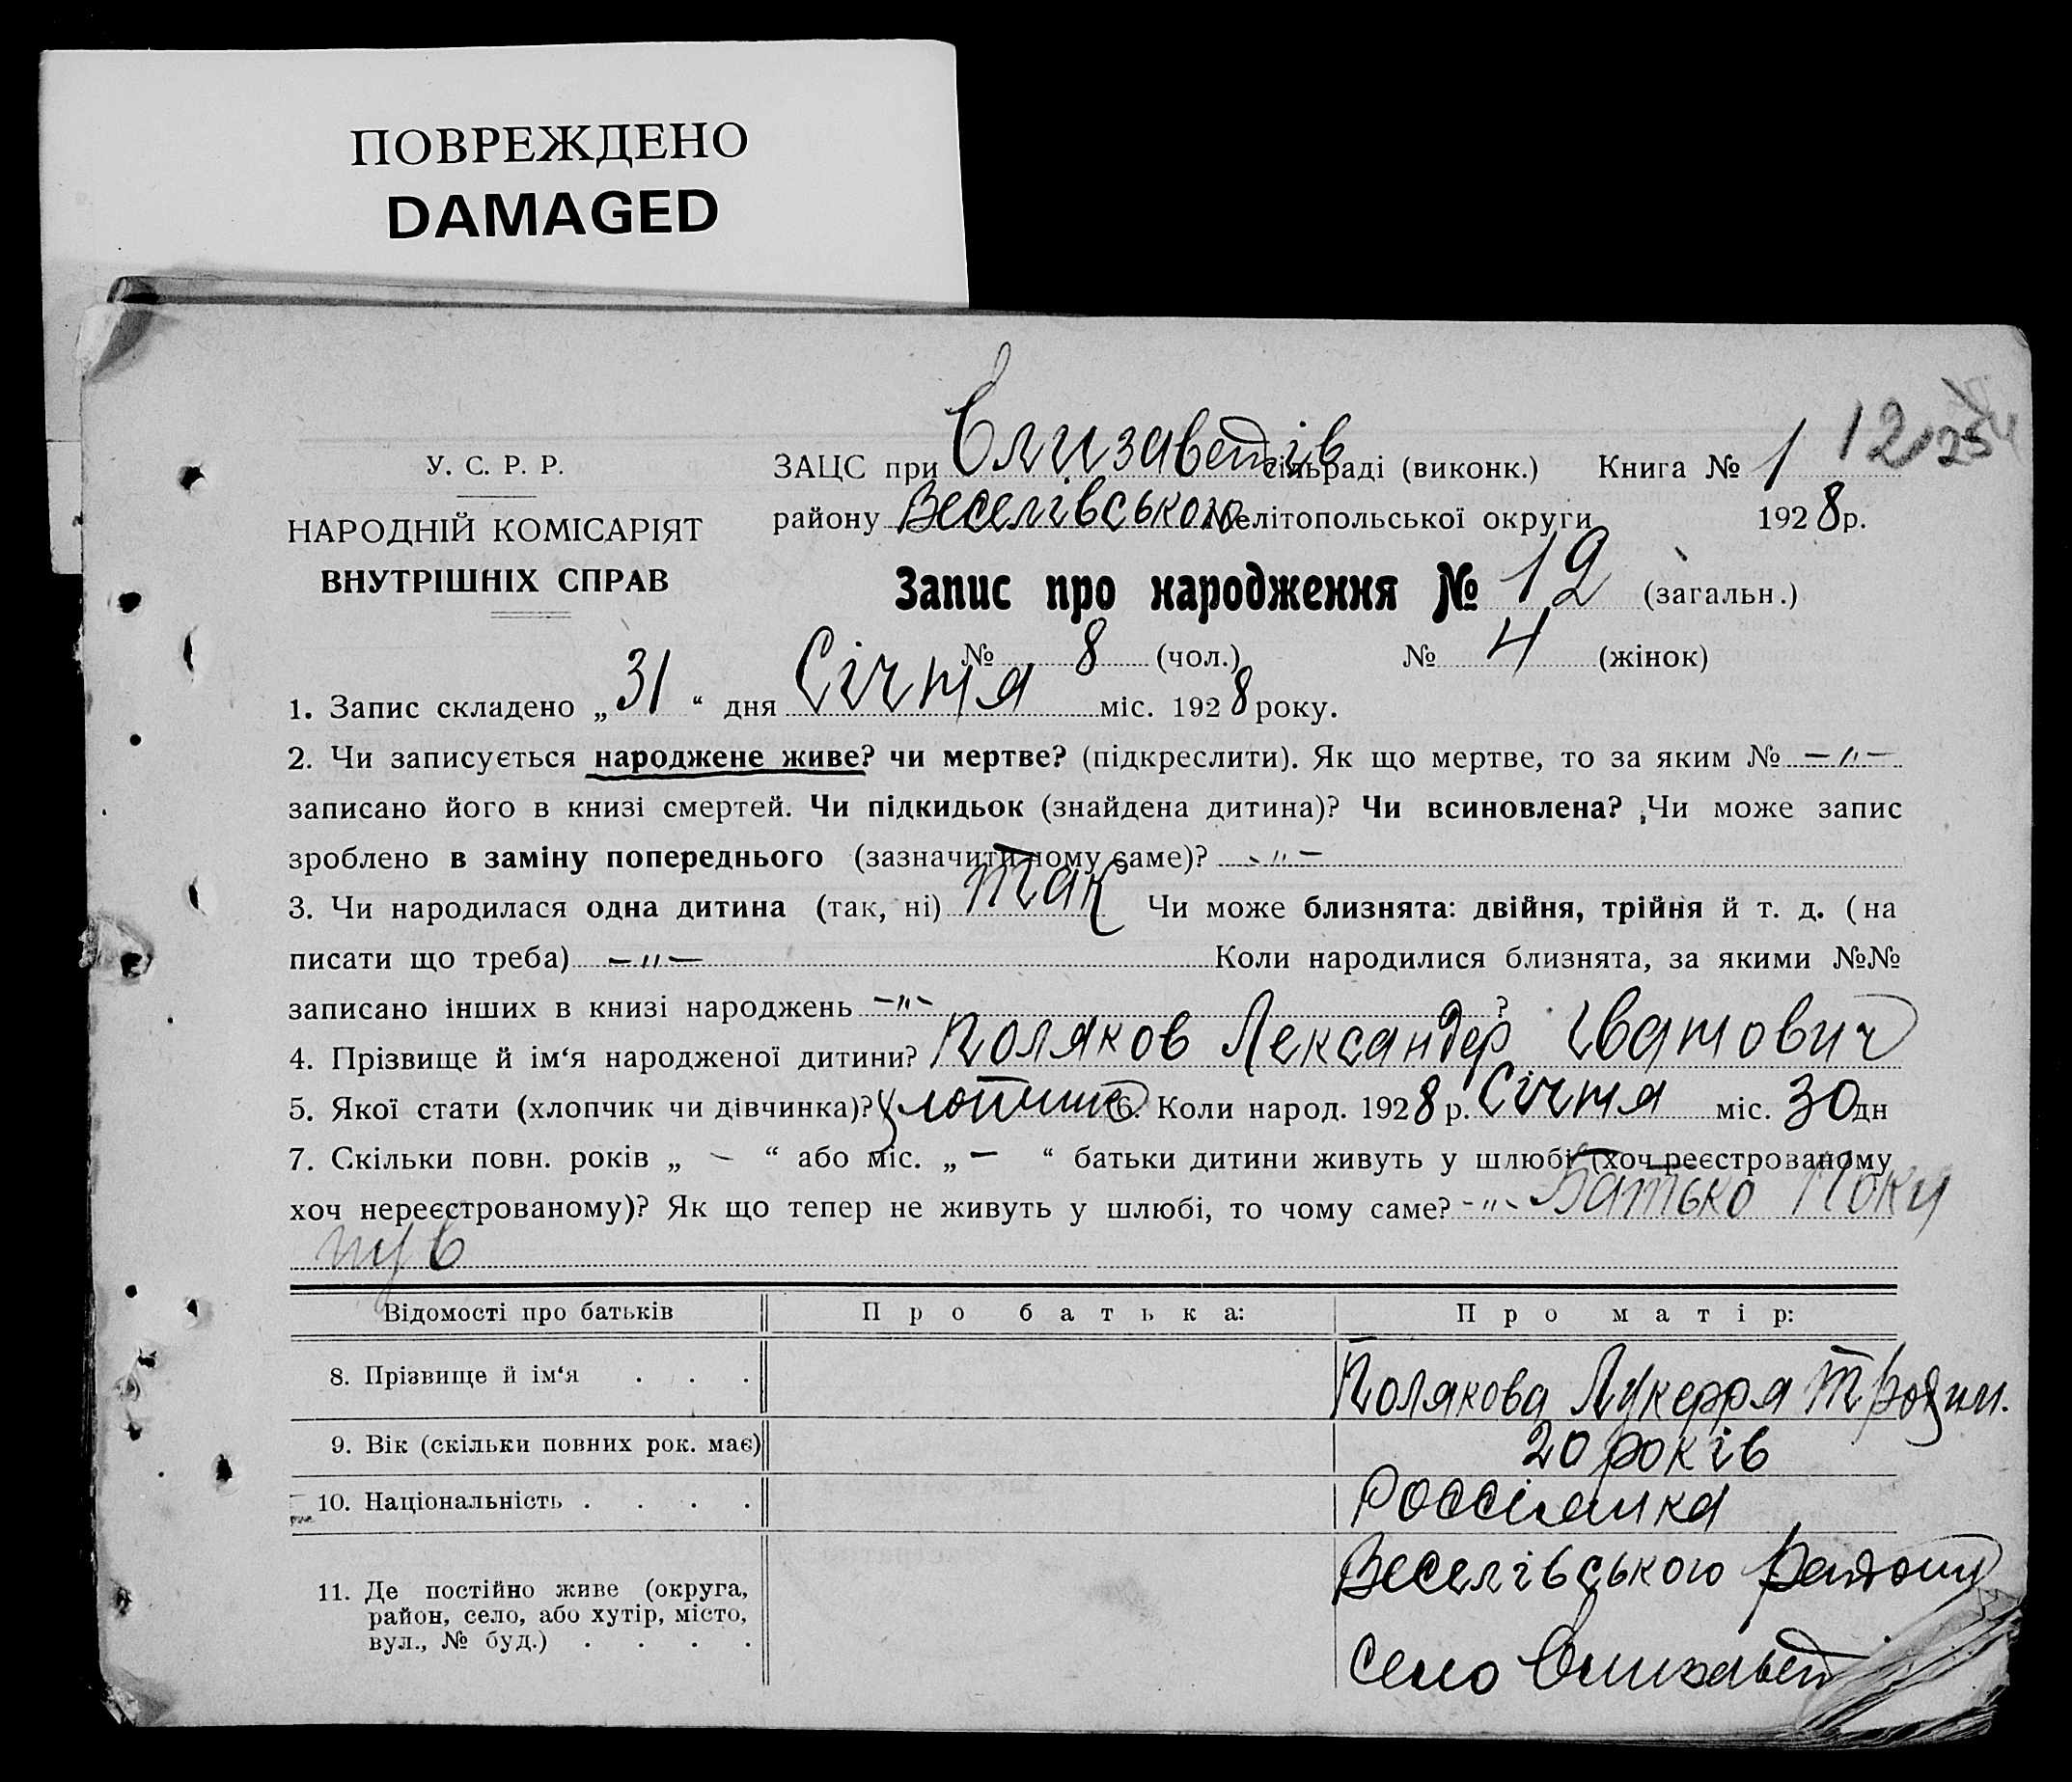 ПОВРЕЖДЕНО
DAMAGED
У. С. Р. Р.
НАРОДНІЙ КОМІСАРІЯТ
ВНУТРІШНІХ СПРАВ
ЗАЦС при Єлизаветів сільраді (виконк.) Книга № 1 12
району Веселівського Мелітопольської округи 1928 р.
Запис про народження № 12 (загальн.)
№ 8 (чол.) № 4 (жінок)
1. Запис складено „ 31 “ дня Січня міс. 1928 року.
2. Чи записується народжене живе? чи мертве? (підкреслити). Як що мертве, то за яким № –„–
записано його в книзі смертей. Чи підкидьок (знайдена дитина)? Чи всиновлена? Чи може запис
зроблено в заміну попереднього (зазначити чому саме)? –„–
3. Чи народилася одна дитина (так, ні) Так Чи може близнята: двійня, трійня й т. д. (на
писати що треба) –„– Коли народилися близнята, за якими №№
записано інших в книзі народжень –„– ?
4. Прізвище й ім‘я народженої дитини? Поляков Лександер Іванович
5. Якої стати (хлопчик чи дівчинка)? 6. Коли народ. 1928 р. Січня міс. 30 дн
7. Скільки повн. років „ – “ або міс. „ – “ батьки дитини живуть у шлюбі (хоч реєстрованому
хоч нереєстрованому)? Як що тепер не живуть у шлюбі, то чому саме? –„– Батько Поки
нув
Відомості про батьків Про батька: Про матір:
8. Прізвище й ім‘я . . . Полякова Лукерря Трохим.
9. Вік (скільки повних рок. має) 20 років
10. Національність . . . . Россіянка
11. Де постійно живе (округа, Веселівського району
район, село, або хутір, місто,
вул., № буд.) . . . . село Єлизавет